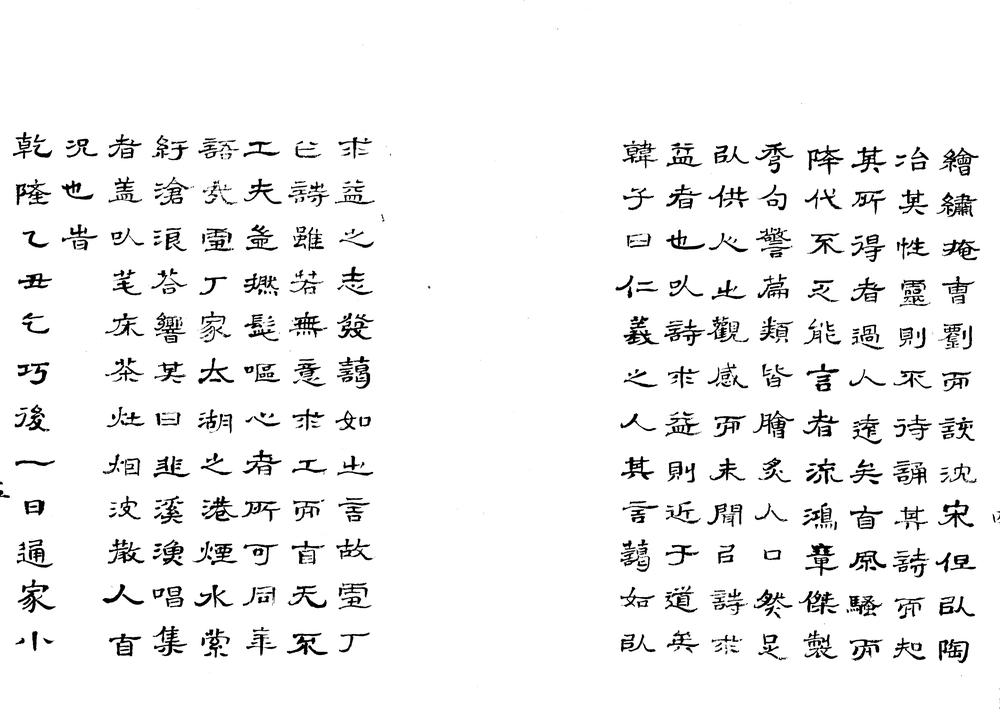 繪繡掩曹劉而該沈宋但以陶
冶其性靈則不待誦其詩而知
其所得者過人遠矣自風騷而
降代不乏能言者流鴻章傑製
秀句警篇類皆膾炙人口然足
以供人之觀感而未聞以詩求
益者也以詩求益則近于道矣
韓子曰仁義之人其言藹如以
求益之志發藹如之言故雪丁
詩雖若無意求工而自天
工夫豈撚髭嘔心者所可同年
語哉雪丁家太湖之港煙水縈
紆滄浪答響其曰韭溪漁唱集
者蓋以筆床茶灶烟波散人自
況也旹
乾隆乙丑乞巧後一日通家小